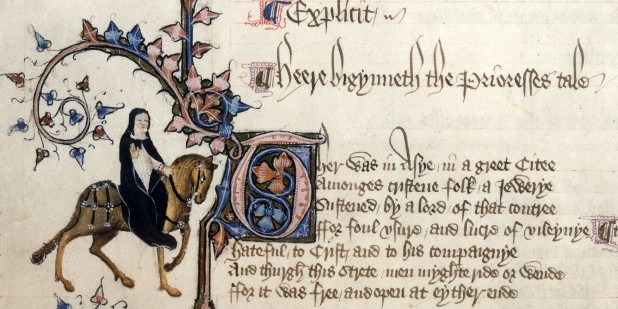 Explicit
Heere bigynneth the Prioresses tale
Ther was in Asye in a greet Citee
Amonges cristene folk a Jewerye
Sustened by a lord of that contree
ffor foul vsure and lucre of vileynye
hateful to Crist and to his compaignye
And thurgh this Strete men myghte ride or wende
ffor it was free and open at eyther ende